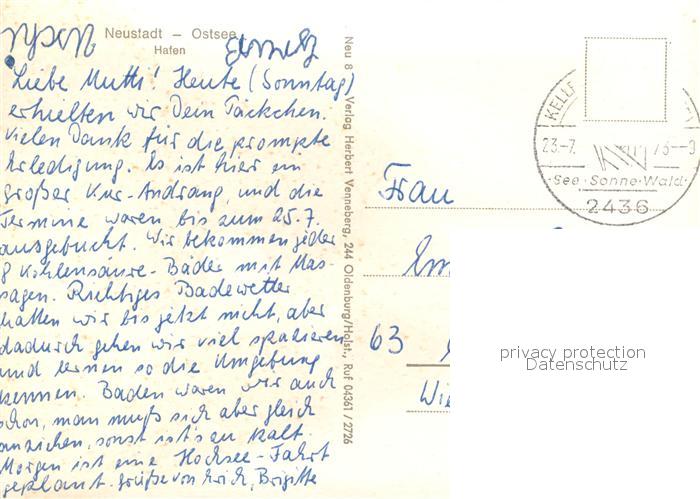 Neustadt – Ostsee
Hafen
Liebe Mutti! Heute (Sonntag)
erhielten wir Dein Päckchen.
Vielen Dank für die prompte
Erledigung. Es ist hier ein
großer Kur-Andrang, und die
Termine waren bis zum 25.7.
ausgebucht. Wir bekommen jeder
8 Kohlensäure-Bäder mit Mas-
sagen. Richtiges Badewetter
hatten wir bis jetzt nicht, aber
dadurch gehen wir viel spazieren
und lernen so die Umgebung
kennen. Baden waren wir auch
schon, man muß sich aber gleich
anziehen, sonst ist's zu kalt.
Morgen ist eine Hochsee-Fahrt
geplant. Grüße von mir, Brigitte
Neu 8 Verlag Herbert Venneberg, 244 Oldenburg/Holst., Ruf 04361 / 2726
KELL
23.-7. 73--9
See·Sonne·Wald
2436
Frau
Em
63
Wie
privacy protection
Datenschutz